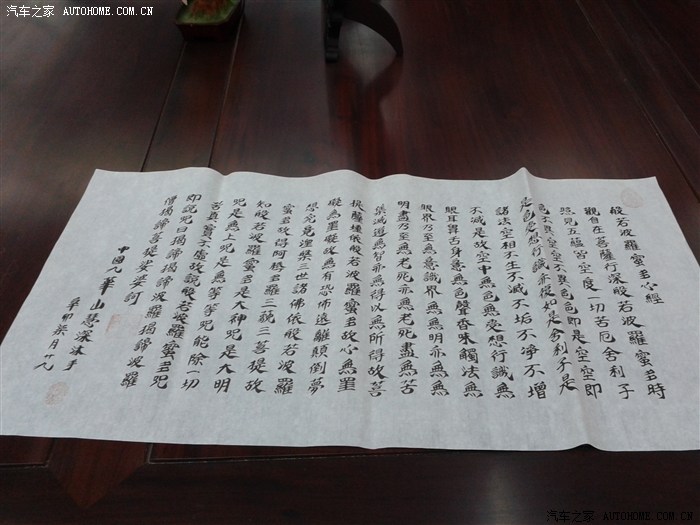 汽车之家 AUTOHOME.COM.CN
般若波羅蜜多心經
觀自在菩薩行深般若波羅蜜多時
照見五蘊皆空度一切苦厄舍利子
色不異空空不異色色即是空空即
是色受想行識亦復如是舍利子是
諸法空相不生不滅不垢不淨不增
不減是故空中無色無受想行識無
眼耳鼻舌身意無色聲香味觸法無
眼界乃至無意識界無無明亦無無
明盡乃至無老死亦無老死盡無苦
集滅道無智亦無得以無所得故菩
提薩埵依般若波羅蜜多故心無罣
礙無罣礙故無有恐怖遠離顛倒夢
想究竟涅槃三世諸佛依般若波羅
蜜多故得阿耨多羅三藐三菩提故
知般若波羅蜜多是大神咒是大明
咒是無上咒是無等等咒能除一切
苦真實不虛故說般若波羅蜜多咒
即說咒曰揭諦揭諦波羅揭諦波羅
僧揭諦菩提娑婆訶
中國九華山慧深沐手
辛卯柒月廿九
汽车之家 AUTOHOME.COM.CN